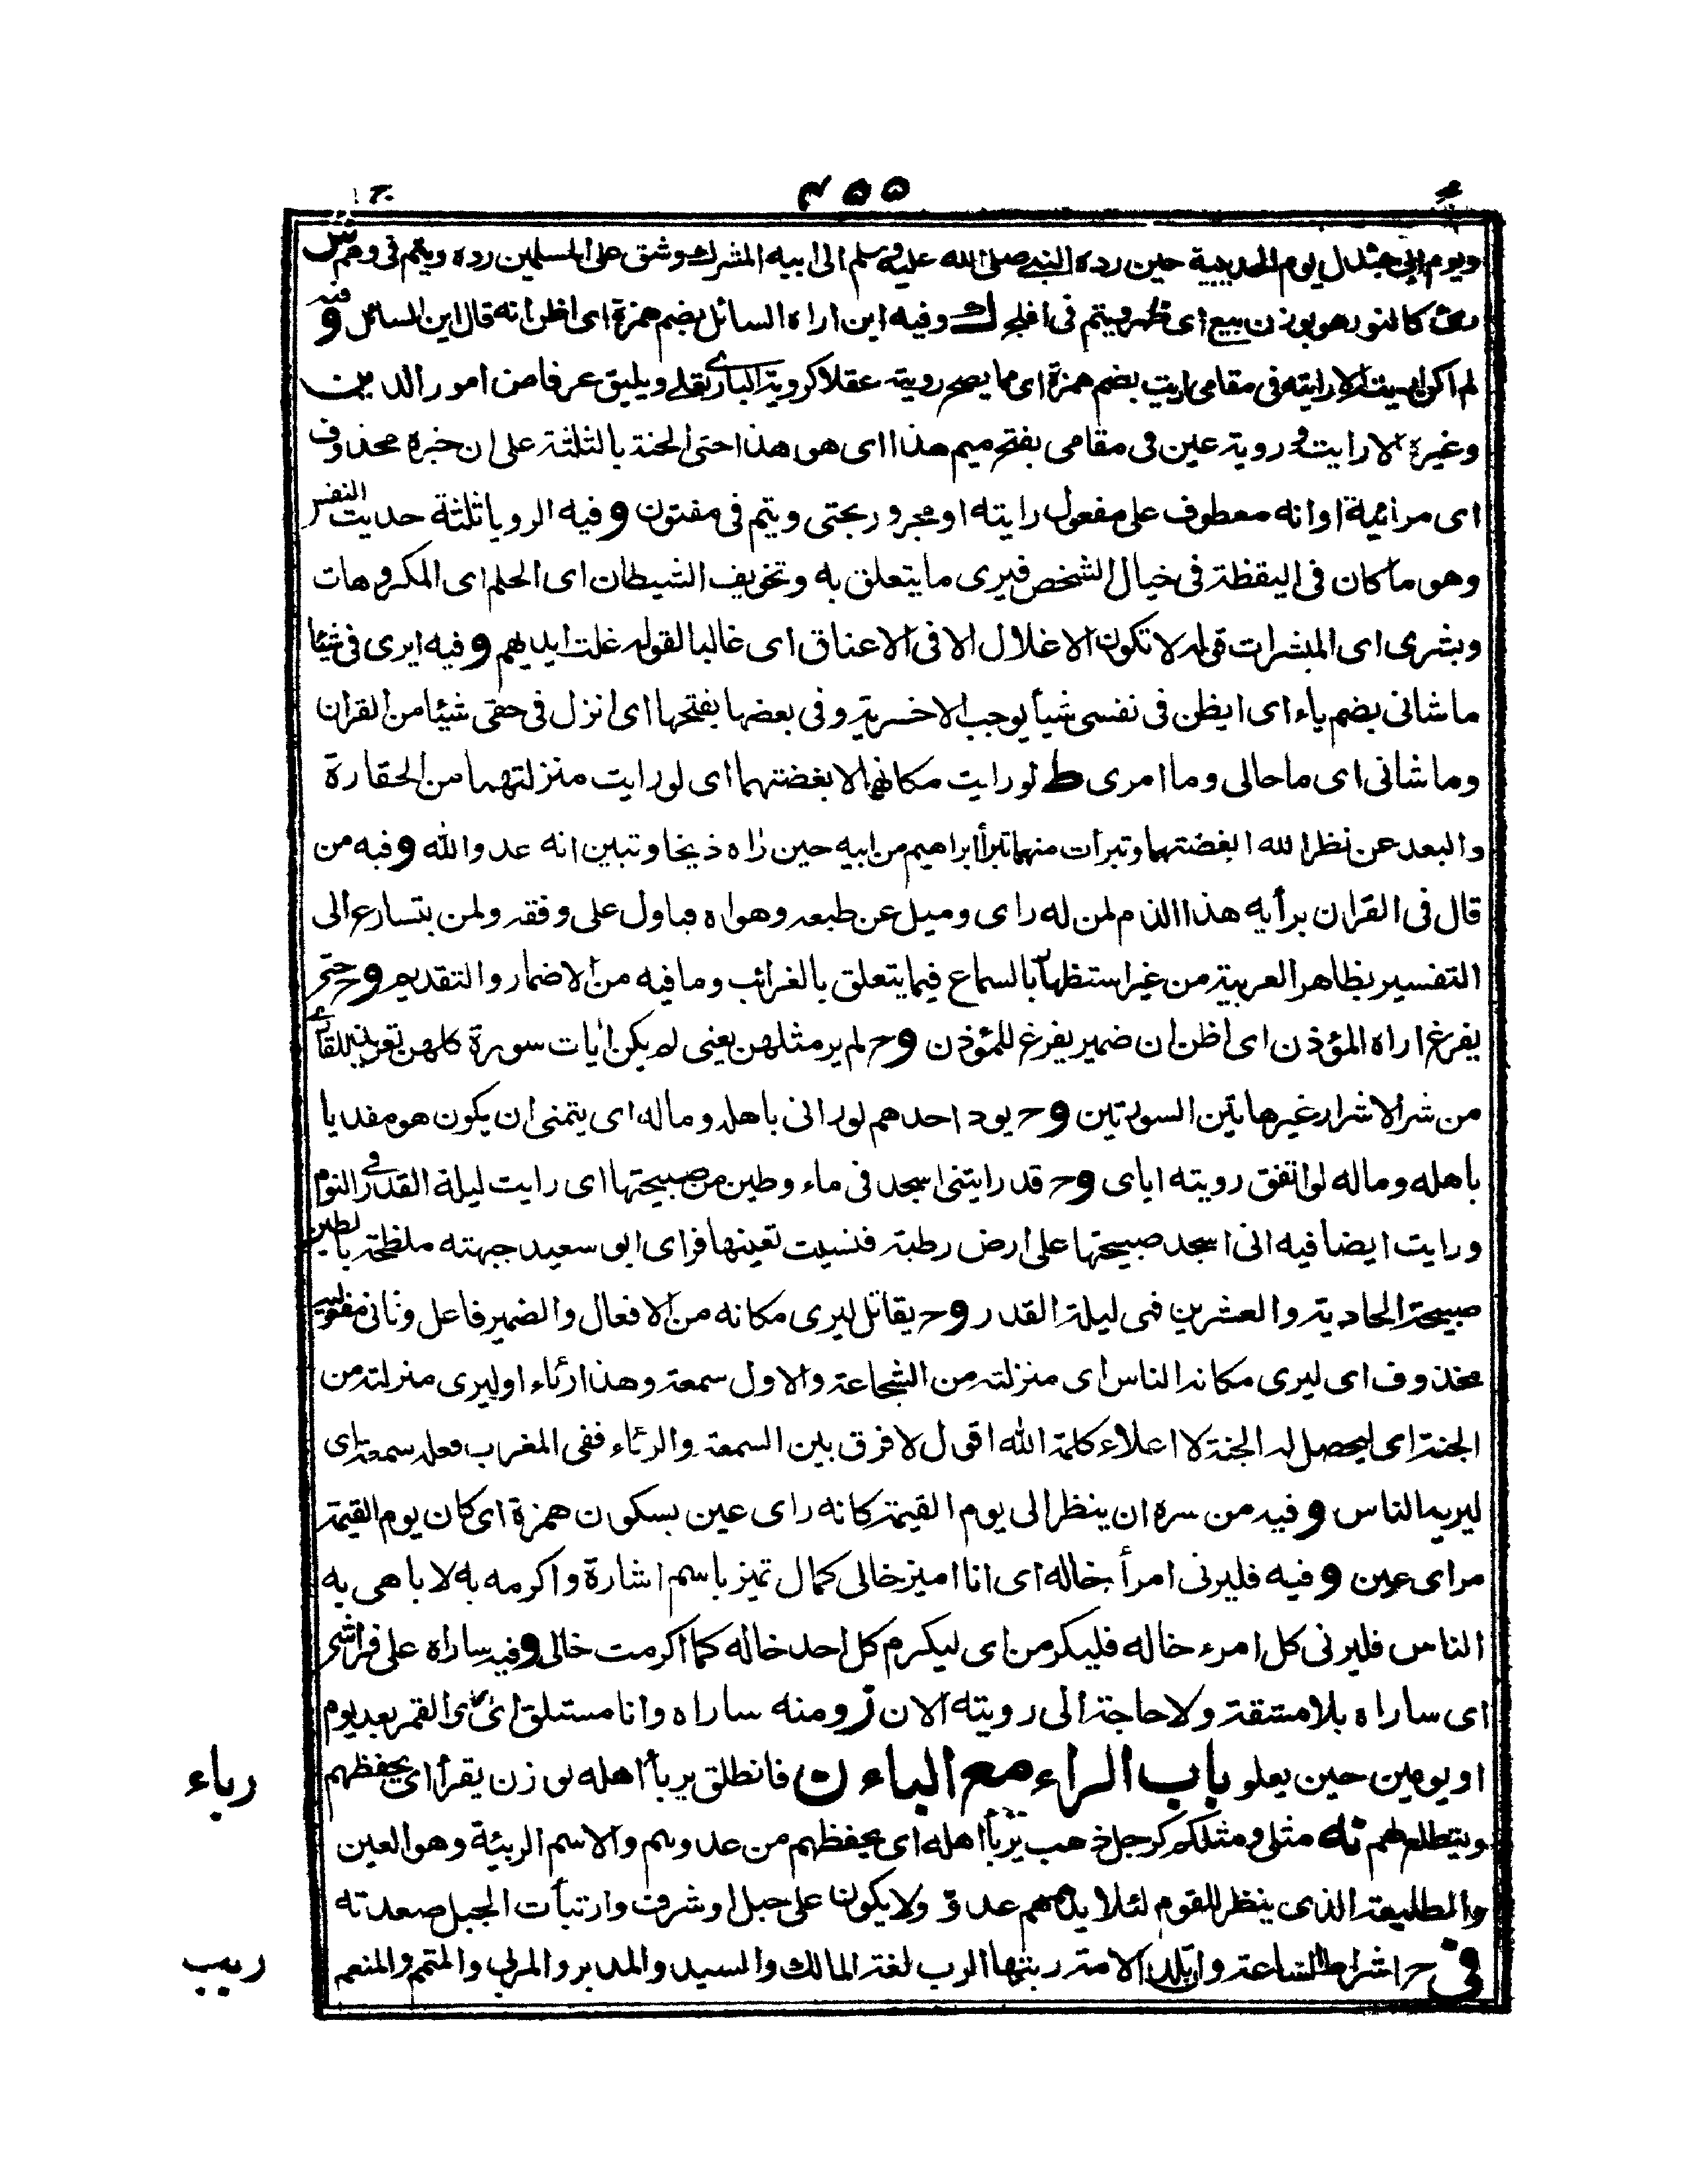 ٤٥٥
ويوم ابى جندل يوم الحديبية حين رده النبى صلى الله عليه وسلم الى ابيه المشرك وشق على المسلمين رده ويتم فى وهم
كالنور هو بوزن بيع اى ظهر ويتم فى افلج ك وفيه اين اراه السائل بضم همزة اى اظن انه قال اين السائل وفيه
لم اكن اريته الا رايته فى مقامى اريت بضم همزة اى مما يصح رويته عقلا كروية البارى تعالى ويليق عرفا من امور الدين
وغيره الا رايته روية عين فى مقامى بفتح ميم هذا اى هو هذا حتى الجنة بالثلثة على ان خبره محذوف
اى مرائية او انه معطوف على مفعول رايته او مجرور بحتى ويتم فى مفتون وفيه الرويا ثلثة حديث النفس
وهو ما كان فى اليقظة فى خيال الشخص فيرى ما يتعلق به وتخويف الشيطان اى الحلم اى المكروهات
وبشرى اى المبشرات قوله لا تكون الاغلال الا فى الاعناق اى غالبا لقوله غلت ايديهم وفيه ايرى فى شيئا
ما شانى بضم ياء اى ايظن فى نفسى شيأ يوجب الاخسرية وفى بعضها بفتحها اى انزل فى حقى شيئا من القران
وما شانى اى ما حالى وما امرى ط لو رايت مكانهما لابغضتهما اى لو رايت منزلتهما من الحقارة
والبعد عن نظر الله ابغضتهما وتبرات منهما تبرأ ابراهيم من ابيه حين راه ذيخا وتبين انه عدو الله وفيه من
قال فى القران برأيه هذا الذم لمن له راى وميل عن طبعه وهواه فياول على وفقه ولمن يتسارع الى
التفسير بظاهر العربية من غير استظهار بالسماع فيما يتعلق بالغرائب وما فيه من الاضمار والتقديم وح حتى
يفرغ اراه المؤذن اى اظن ان ضمير يفرغ للمؤذن وح لم ير مثلهن يعنى لم يكن ايات سورة كلهن تعويذ للقارى
من شر الاشرار غير هاتين السورتين وح يود احدهم لو رانى باهله وماله اى يتمنى ان يكون هو مفديا
باهله وماله لو اتفق رويته اياى وح قد رايتنى اسجد فى ماء وطين من صبيحتها اى رايت ليلة القدر فى النوم
ورايت ايضا فيه انى اسجد صبيحتها على ارض رطبة فنسيت تعينها فراى ابو سعيد جبهته ملطخة بالطين
صبيحة الحادية والعشرين فهى ليلة القدر وح يقاتل ليرى مكانه من الافعال والضمير فاعل وثانى مفعوليه
محذوف اى ليرى مكانه الناس اى منزلته من الشجاعة والاول سمعة وهذا رئاء او ليرى منزلته من
الجنة اى ليحصل له الجنة لا اعلاء كلمة الله اقول لا فرق بين السمعة والرئاء ففى المغرب فعله سمعة اى
ليريه الناس وفيه من سره ان ينظر الى يوم القيمة كانه راى عين بسكون همزة اى كان يوم القيمة
مراى عين وفيه فليرنى امرأ خاله اى انا اميز خالى كمال تميز باسم اشارة واكرمه به لا باهى به
الناس فليرنى كل امرء خاله فليكرمن اى ليكرم كل احد خاله كما اكرمت خالى وفيه ساراه على فراشى
اى ساراه بلا مشقة ولا حاجة الى رويته الان ز ومنه ساراه وانا مستلق اى ارى القمر بعد يوم
او يومين حين يعلو باب الراء مع الباء ن فانطلق يربأ اهله بوزن يقرأ اى يحفظهم
ويتطلع لهم نه مثلى ومثلكم كرجل ذهب يربأ اهله اى يحفظهم من عدوهم والاسم الربيئة وهو العين
والطليعة الذى ينظر للقوم لئلا يدهمهم عدو ولا يكون على جبل او شرف وارتبأت الجبل صعدته
فى ح اشراط الساعة وان تلد الامة ربتها الرب لغة المالك والسيد والمدبر والمربى والمتمم والمنعم
رباء
ربب